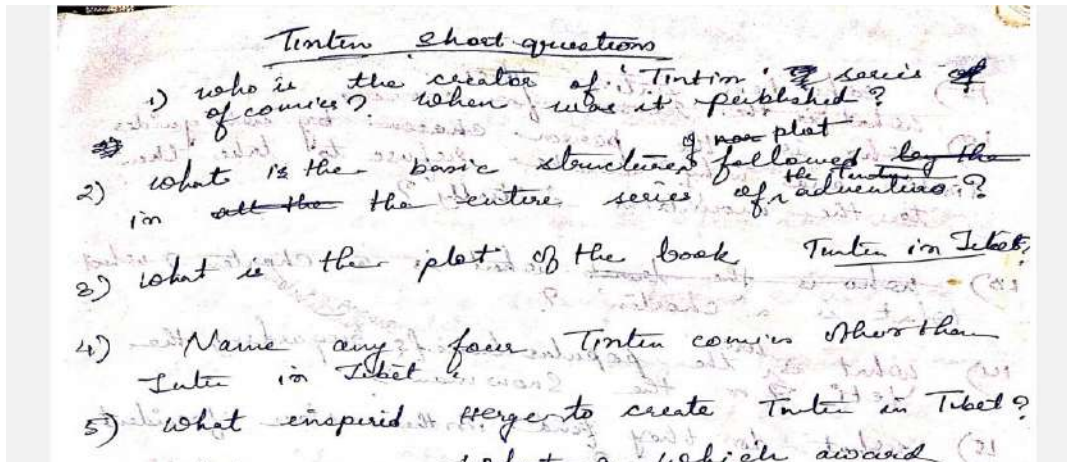 Tintin short questions
1) who is the creator of 'Tintin' series
of comics? When was it published?
2) what is the basic structure of plot followed
in the entire series of the Tintin adventures?
3) what is the plot of the book Tintin in Tibet?
4) Name any four Tintin comics other than
Tintin in Tibet.
5) what enspired Herge to create Tintin in Tibet?
which award